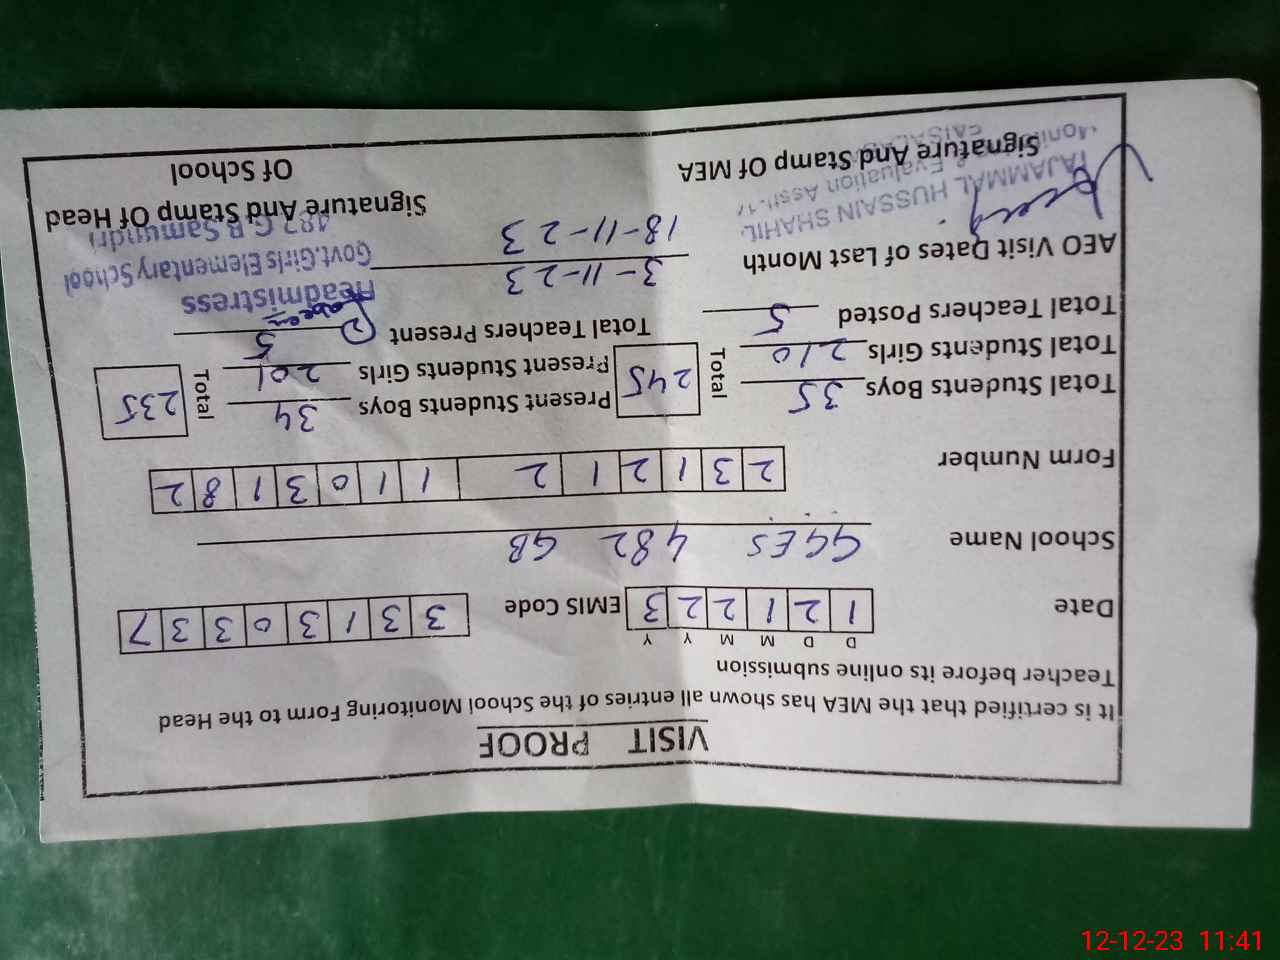 VISIT PROOF
It is certified that the MEA has shown all entries of the School Monitoring Form to the Head
Teacher before its online submission
D D M M Y Y
Date 1 2 1 2 2 3 EMIS Code 3 3 1 3 0 3 3 7
School Name GGES 482 GB
Form Number 2 3 1 2 1 2 1 1 0 3 1 8 2
Total Students Boys 35 Total 245 Present Students Boys 34 Total 235
Total Students Girls 210 Present Students Girls 201
Total Teachers Posted 5 Total Teachers Present 5
Headmistress
AEO Visit Dates of Last Month 3-11-23
Govt.Girls Elementary School
18-11-23
G.B Samundri
TAJAMMAL HUSSAIN SHAHID
& Evaluation Assit-17
Signature And Stamp Of MEA Signature And Stamp Of Head
Of School
12-12-23 11:41